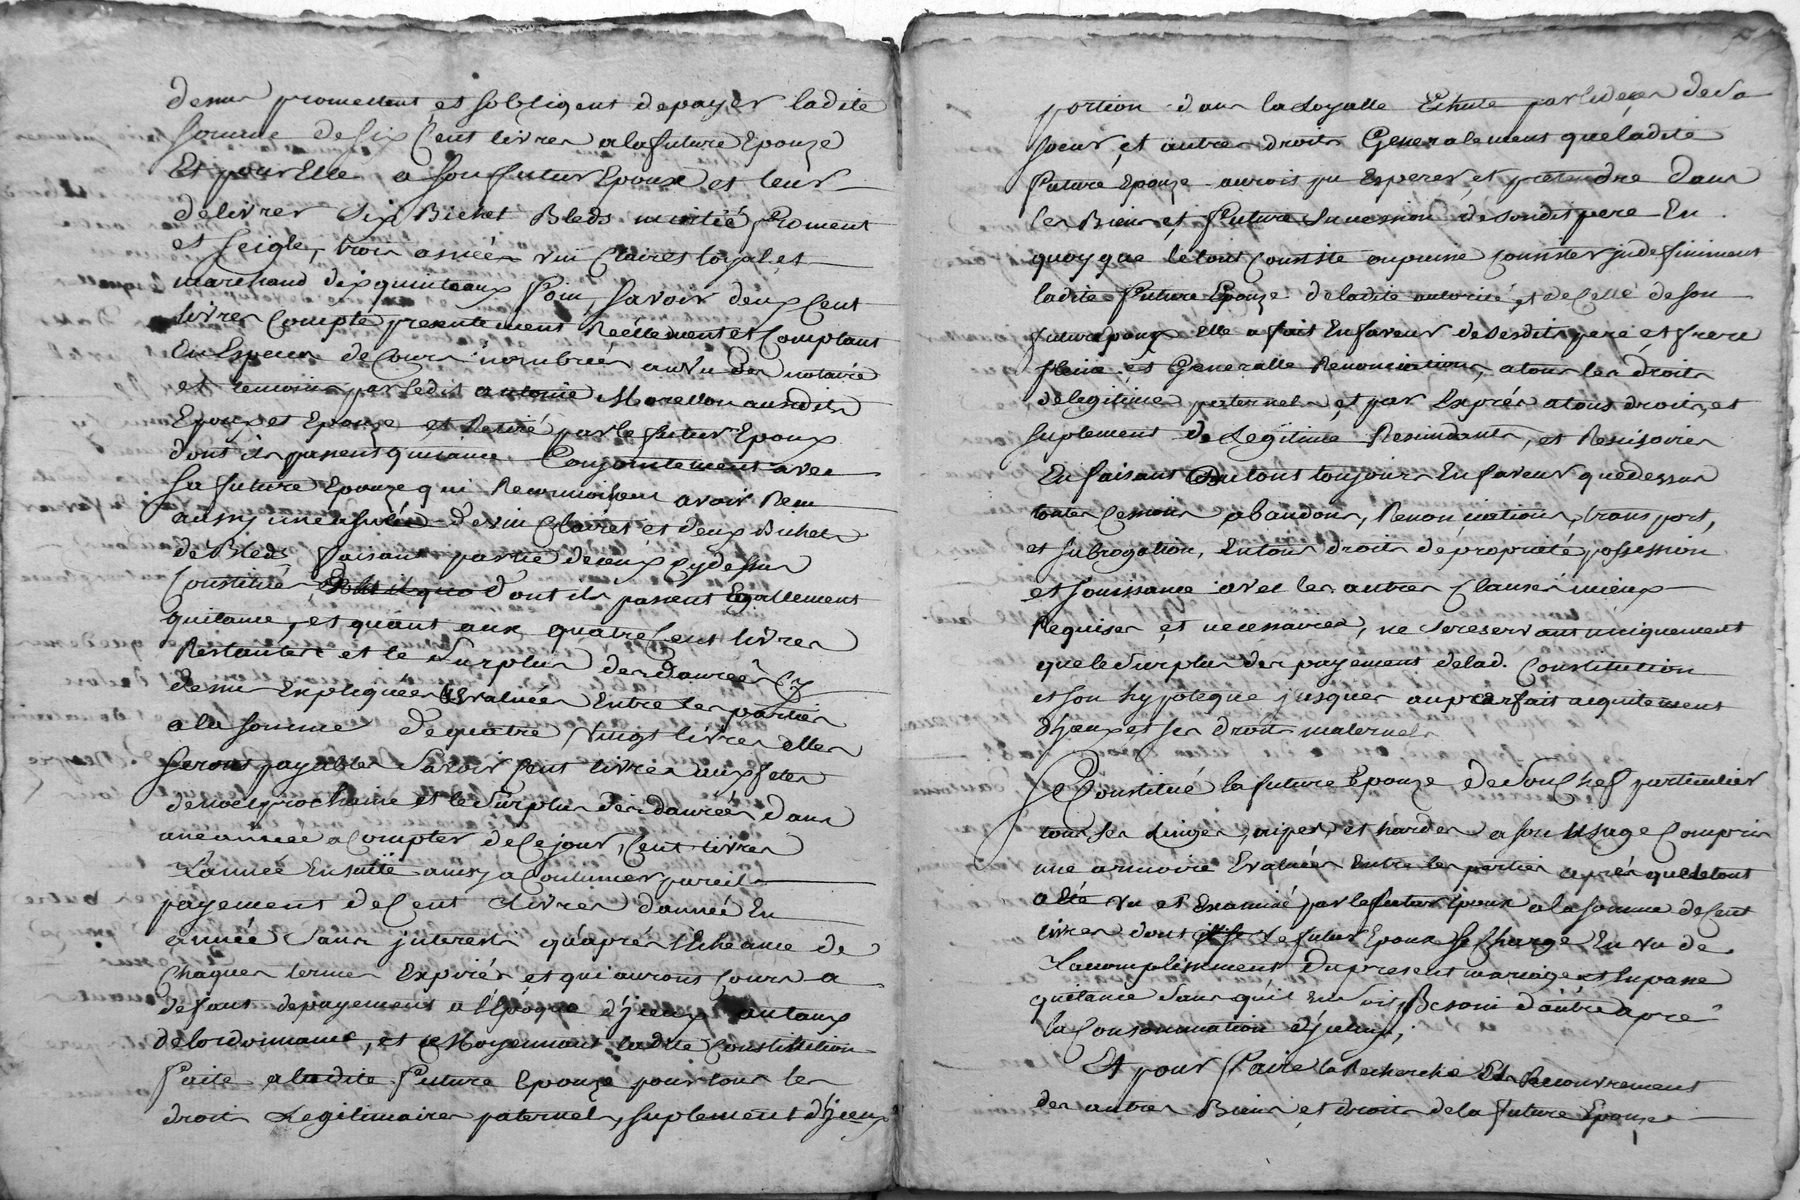 desus promettent et sobligent depayer ladite
somme de six Cent livres alafuture Epouze
Et pour Elle a Son futur Epoux et leur
delivrer six Bichet Bleds moitié froment
et seigle, trois asnées vin Clairet loyal et
marchand dix quinteaux foin, Savoir deux Cent
livres Compté presentement Reéllement et Comptant
En Especes de Cours nombrées au vu des notaire
et temoins par ledit antoine Morellon ausdits
Epoux et Epouze et Retiré par le futur Epoux
dont ils passent quitance Conjointement avec
sa future Epouze qui Reconnoissent avoir Recu
aussy une asnée de vin Clairet et deux Bichets
de Bleds faisant partie de ceux Cydessus
Constitué dont ils passent Egallement
quitance, et quant aux quatre Cent livres
Restantes et le Surplus des danrées Cy
desus Expliquées Evaluées Entre les parties
a la somme de quatre Vingt livres elles
seront payables Savoir Cent livres aux fetes
de noel prochaine et le Surplus des danrées dans
une année a Compter de Ce jour, Cent livres
L'année Ensuitte ainsy a Continuer pareils
payement de Cent Livres d'année En
année Sans interests qu'après l'Echeance de
Chaques termes Expirés et qui auront Cours a
défaut de payement a l'Epoque d'jceux au taux
de lordonnance, et Moyennant ladite Constitution
faite a ladite future Epouze pour tous les
droits Legitimaires paternels, suplement d'jceux
portion dans la Loyalle Echute par le deces de sa
soeur, et autres droits Generalement que ladite
future Epouze auroit pu Esperer et pretendre dans
les Biens et future Succession de son dit pere En
quoy que le tout Consiste ou puisse Consister judefiniment
ladite future Epouze de ladite autorité et de Celle de son
futur Epoux elle a fait En faveur de Sesdits pere et frere
pleine et Generalle Renonciation, a tous les droits
de legitime paternels et par Exprés a tous droits, et
suplement de Legitime Rescindants, et Rescisoires
En faisant En outre toujours En faveur que dessus
toutes Cessions abandons, Renonciations, transport,
et subrogation, En tous droits de proprieté possession
et Jouissance avec les autres Clauses mieux
Requises et necessaires, ne se reservant uniquement
que le Surplus des payement de lad. Constitution
et son hypoteque jusques au parfait aquitement
d'jceux et ses droits maternels
Se Constitué la future Epouze de Son Chef particulier
tous ses Linges, nipes, et hardes a son Usage Compris
une armoire Evaluées Entre les parties après que le tout
a été vu et Examiné par le futur Epoux a la Somme de Cent
livres dont le futur Epoux Se Charge En vu de
L'accomplissement du present mariage et En passe
quitance Sans qu'il En soit Besoin d'autre après
la Consommation d'jceluy;
Et pour faire la Recherche Et Recouvrement
des autres Biens et droits de la future Epouze